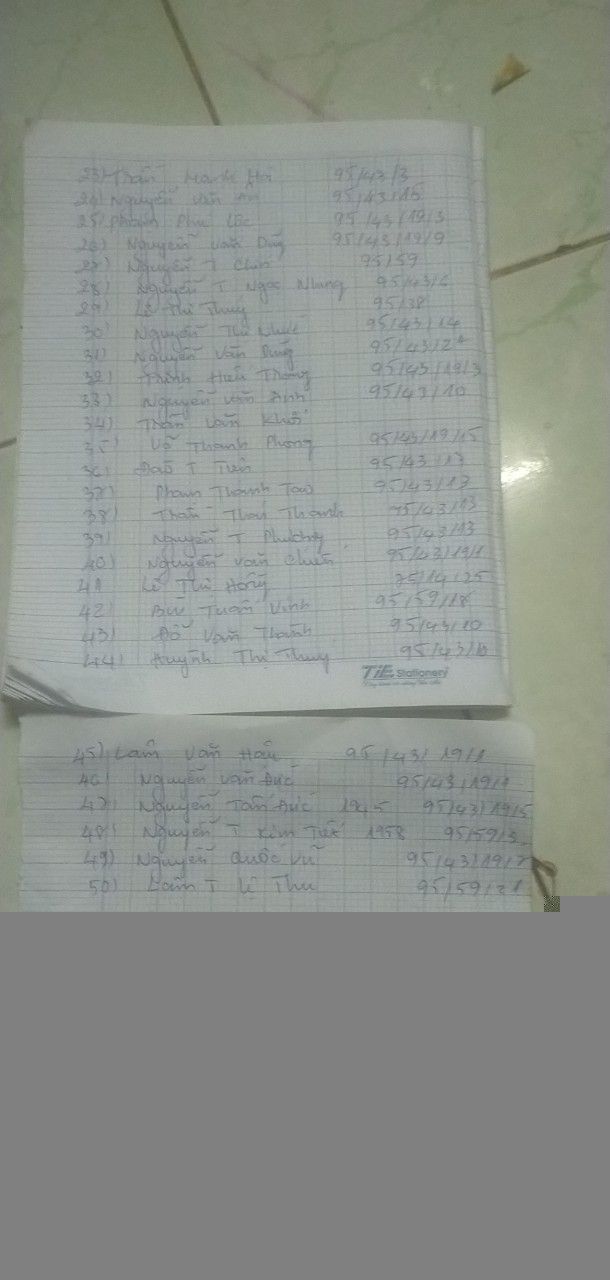 23) Trần Mạnh Hải 95/43/3
24) Nguyễn Văn An 95/43/15
25) Phạm Phú Lộc 95/43/19/3
26) Nguyễn Văn Dũg 95/43/19/9
27) Nguyễn T Chín 95/59
28) Nguyễn T Ngọc Nhung 95/43/
29) Lê Thị Thuý 95/38
30) Nguyễn Thị 95/43/14
31) Nguyễn Văn Dũng 95/43/2
32) Trịnh Hiển Thông 95/43/19/3
33) Nguyễn Văn Ảnh 95/43/10
34) Trần Văn
35) Võ Thanh Phong 95/43/19/15
36) Đào T Tiên 95/43/13
37) Phạm Thành 95/43/13
38) Trần Thanh 95/43/13
39) Nguyễn T Phương 95/43/13
40) Nguyễn Văn Chiến 95/43/19/1
41) Lê Thị Hồng 25
42) Bùi Tuấn Vinh 95/59/18
43) Đỗ Văn Thành 95/43/10
44) Huỳnh Thị Thuỷ 95/43/
TiE Stationery
45) Lâm Văn Hậu 95/43/19/1
46) Nguyễn Văn Đức 95/43/19/1
47) Nguyễn Tấn Đức 1945 95/43/19/5
48) Nguyễn T Kim 1958 95/59/3
49) Nguyễn Quốc Vũ 95/43/19/7
50) Lâm T Lệ Thu 95/59/21